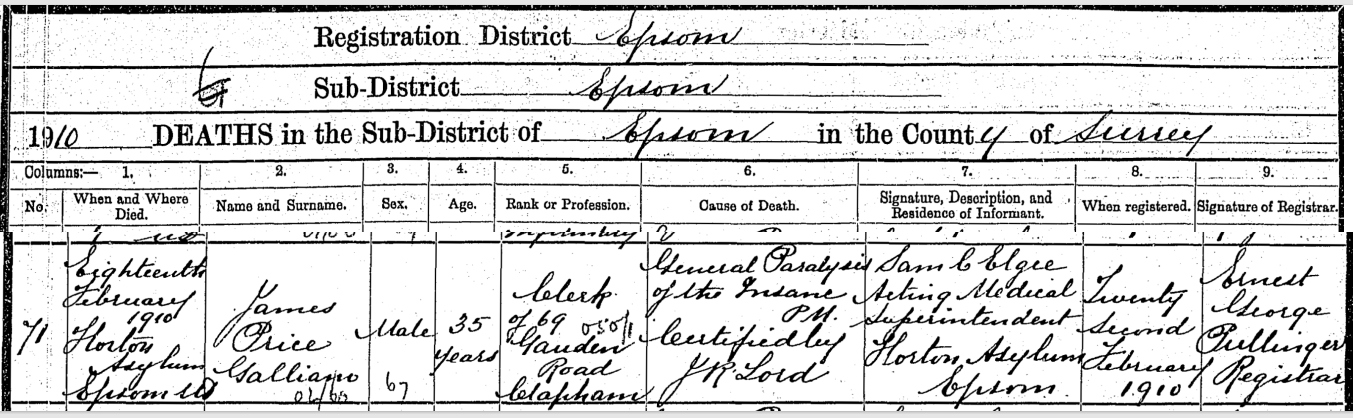 Registration District Epsom
Sub-District Epsom
1910 DEATHS in the Sub-District of Epsom in the County of Surrey
Columns:— 1. 2. 3. 4. 5. 6. 7. 8. 9.
No. When and Where Died. Name and Surname. Sex. Age. Rank or Profession. Cause of Death. Signature, Description, and Residence of Informant. When registered. Signature of Registrar.
71
Eighteenth
February
1910
Horton
Asylum
Epsom
James
Price
Galliano
Male
67
35
years
Clerk
of 69
Gauden
Road
Clapham
General Paralysis
of the Insane
P.M.
Certified by
J R Lord
Sam C Elgee
Acting Medical
Superintendent
Horton Asylum
Epsom
Twenty
Second
February
1910
Ernest
George
Pullinger
Registrar